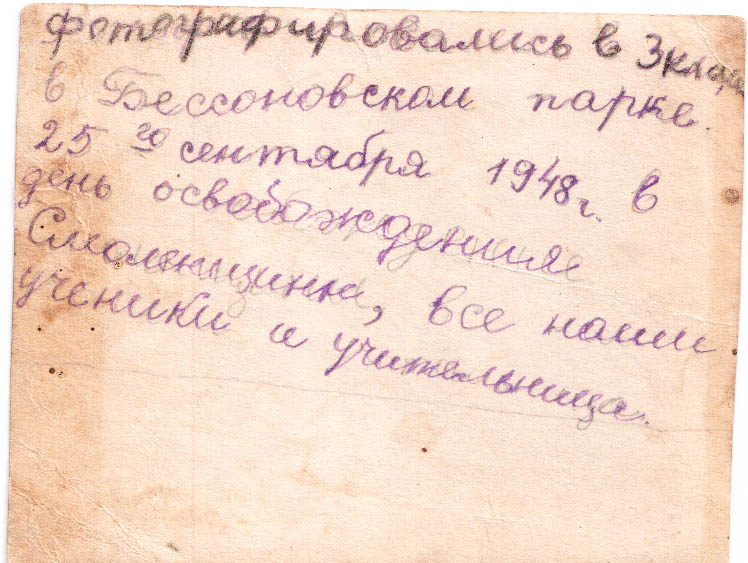 фотографировались в 3 классе
в Бессоновском парке.
25 го сентября 1948 г. в
день освобождения
Смоленщины, все наши
ученики и учительница.